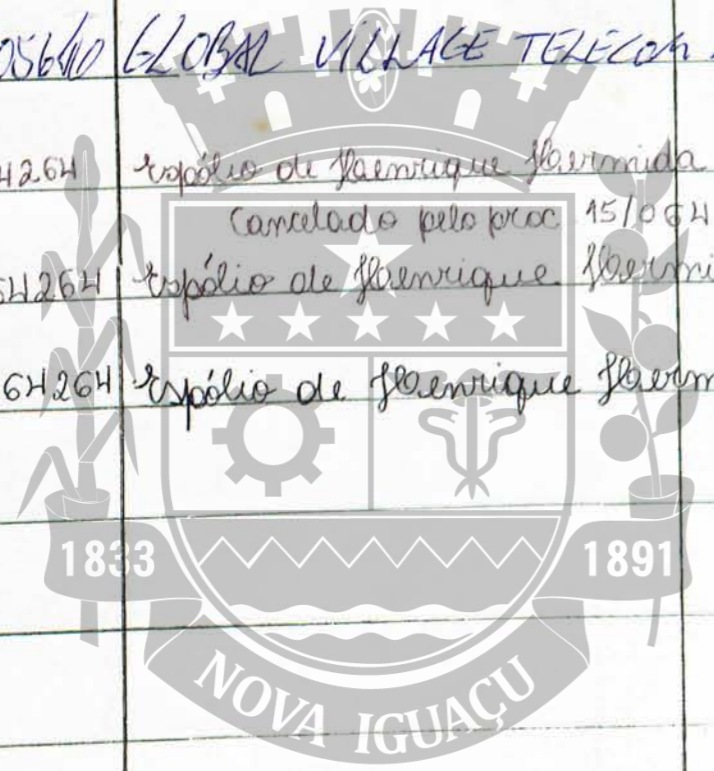 05640 GLOBAL VILLAGE TELECOM
4264 Espólio de Haenrique Haermida
Cancelado pelo proc 15/064
64264 Espólio de Haenrique Haermi
64264 Espólio de Haenrique Haerm
1833 1891
NOVA IGUAÇU